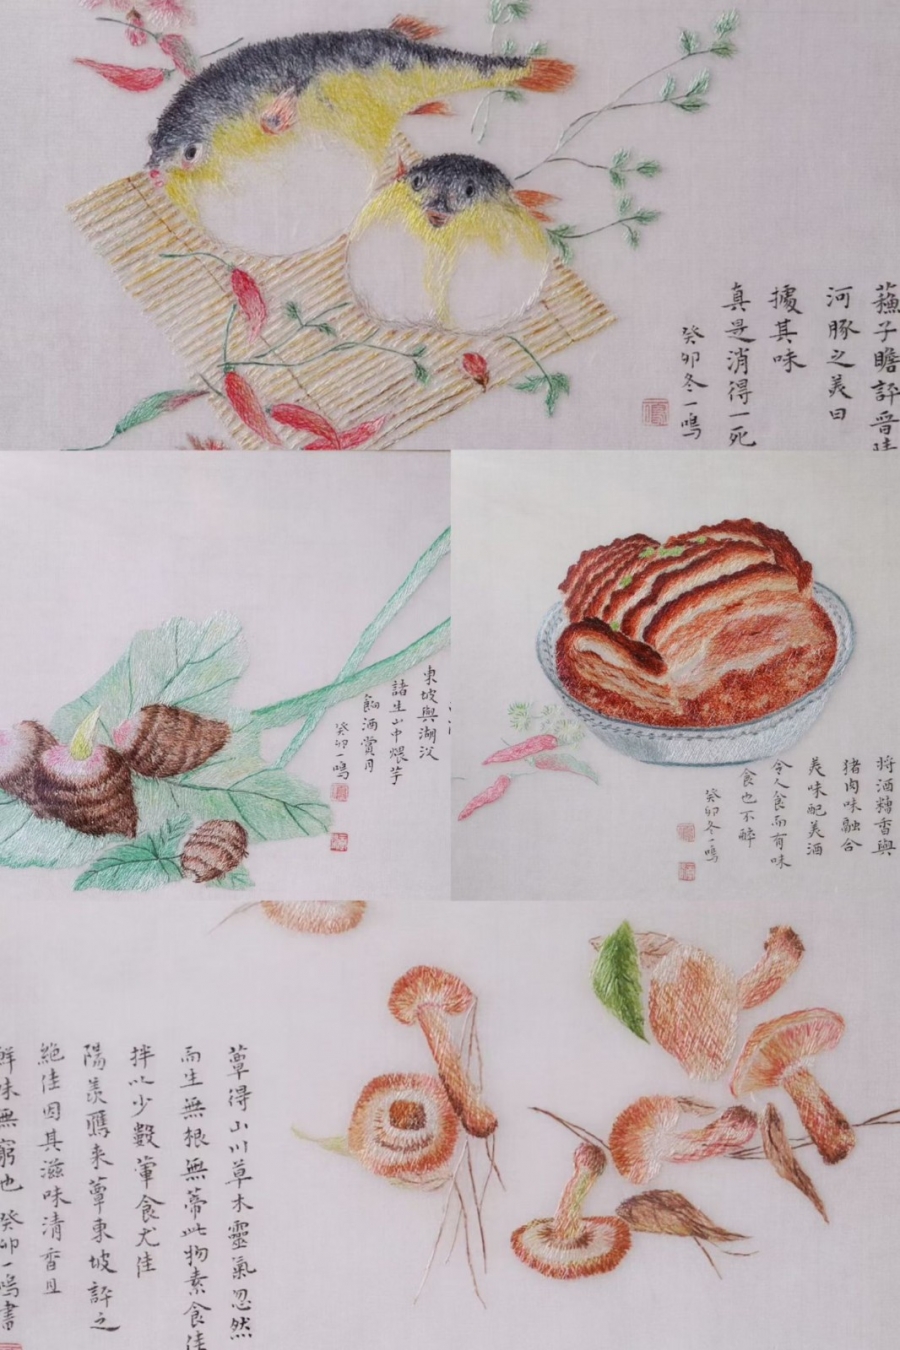 蘓子瞻評晉
河豚之美曰
據其味
真是消得一死
癸卯冬一鳴
東坡與湖㳇
諸生山中煨芋
酒賞月
癸卯一鳴
將酒糟香與
猪肉味融合
美味配美酒
令人食而有味
食也不醉
癸卯冬一鳴
蕈得山川草木靈氣忽然
而生無根無蒂此物素食佳
拌以少數葷食尤佳
陽羨鴈来蕈東坡評之
絕佳因其滋味清香且
鮮味無窮也癸卯一鳴書